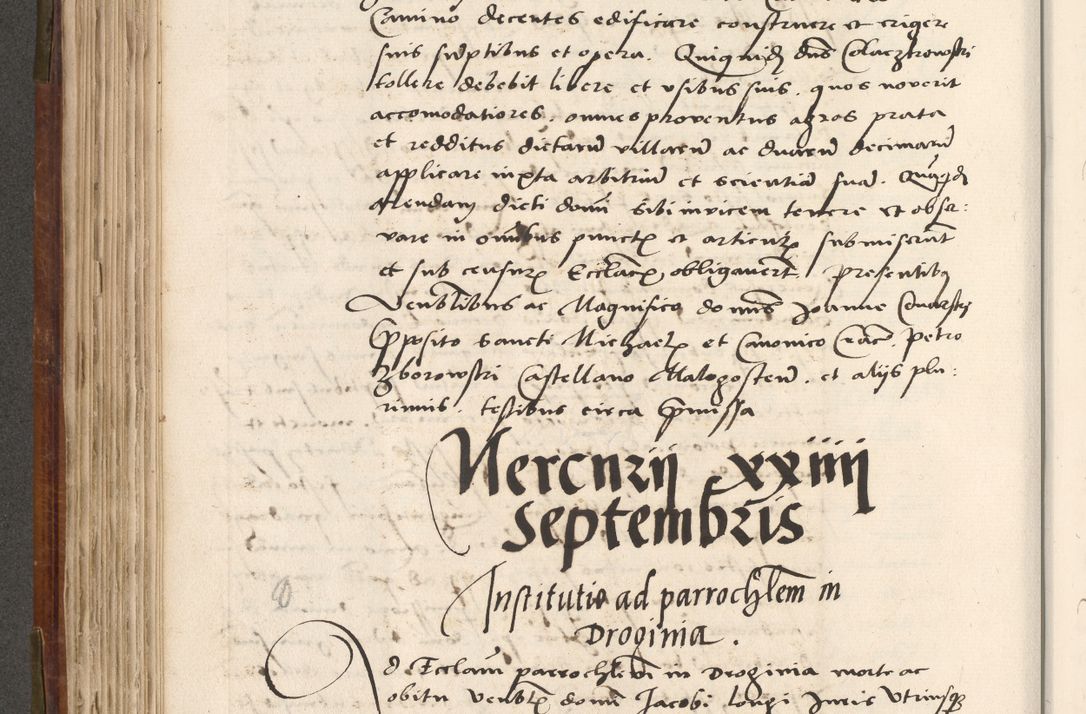 Camino decentes edificare construere et eriger
suis sumptibus et opera. Quiquid dns Colaczkowski
tollere debebit libere et usibus suis, quos noverit
accomodatiores, omnes proventus agros prata
et redditus dictarum villarum ac duarum decimarum
applicare iuxta arbitrium et scientiam suam. Quiquidem
arendam dicti domini sibi invicem tenere et obser:
vare in omnibus punctis et articulis submiserunt
et sub censuris Ecclasticis obligaverunt, presentibus
Venblibus ac Magnifico dominis Joanne
Preposito Sancti Michaelis et Canonico Crac. Petro
Zborowski Castellano Malogosten. et aliis plu:
rimis, testibus circa premissa
Mercurii xxiiii
Septembris
Institutio ad parrochlem in
Droginia.
Ad Ecclam parrochlem in Droginia morte ac
obitu venblis domini Jacobi Longi Juris Utriusque